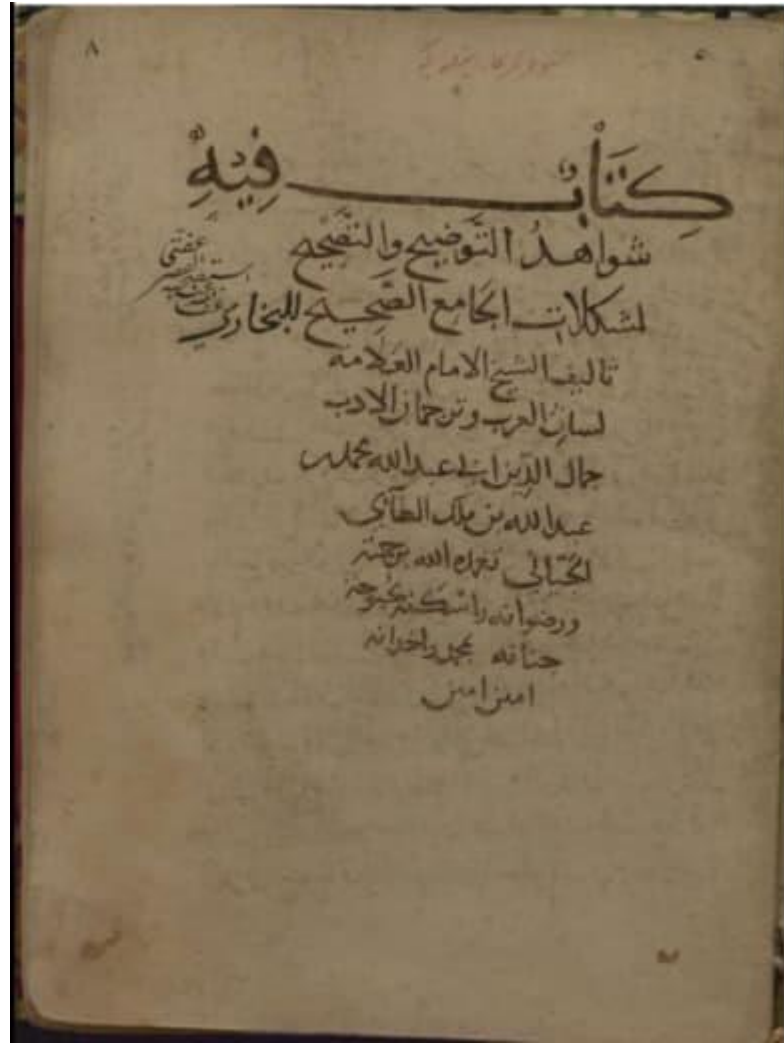 ٨
كِتَابٌ فِيْهِ
شواهدُ التَّوضيح والتَّصْحِيْحِ
لمشكلات الجَامع الصَّحِيح للبخاري
تاليف الشيخ الامام العَلامه
لسان العرب وترجمان الادب
جمال الدّين ابي عبد الله محمد بن
عبد الله بن ملك الطآئي
الجَيَّاني تغمده الله برحمته
ورضوانه واسكنه بحبوحة
جنانه بمحمد واخوانه
امين امين